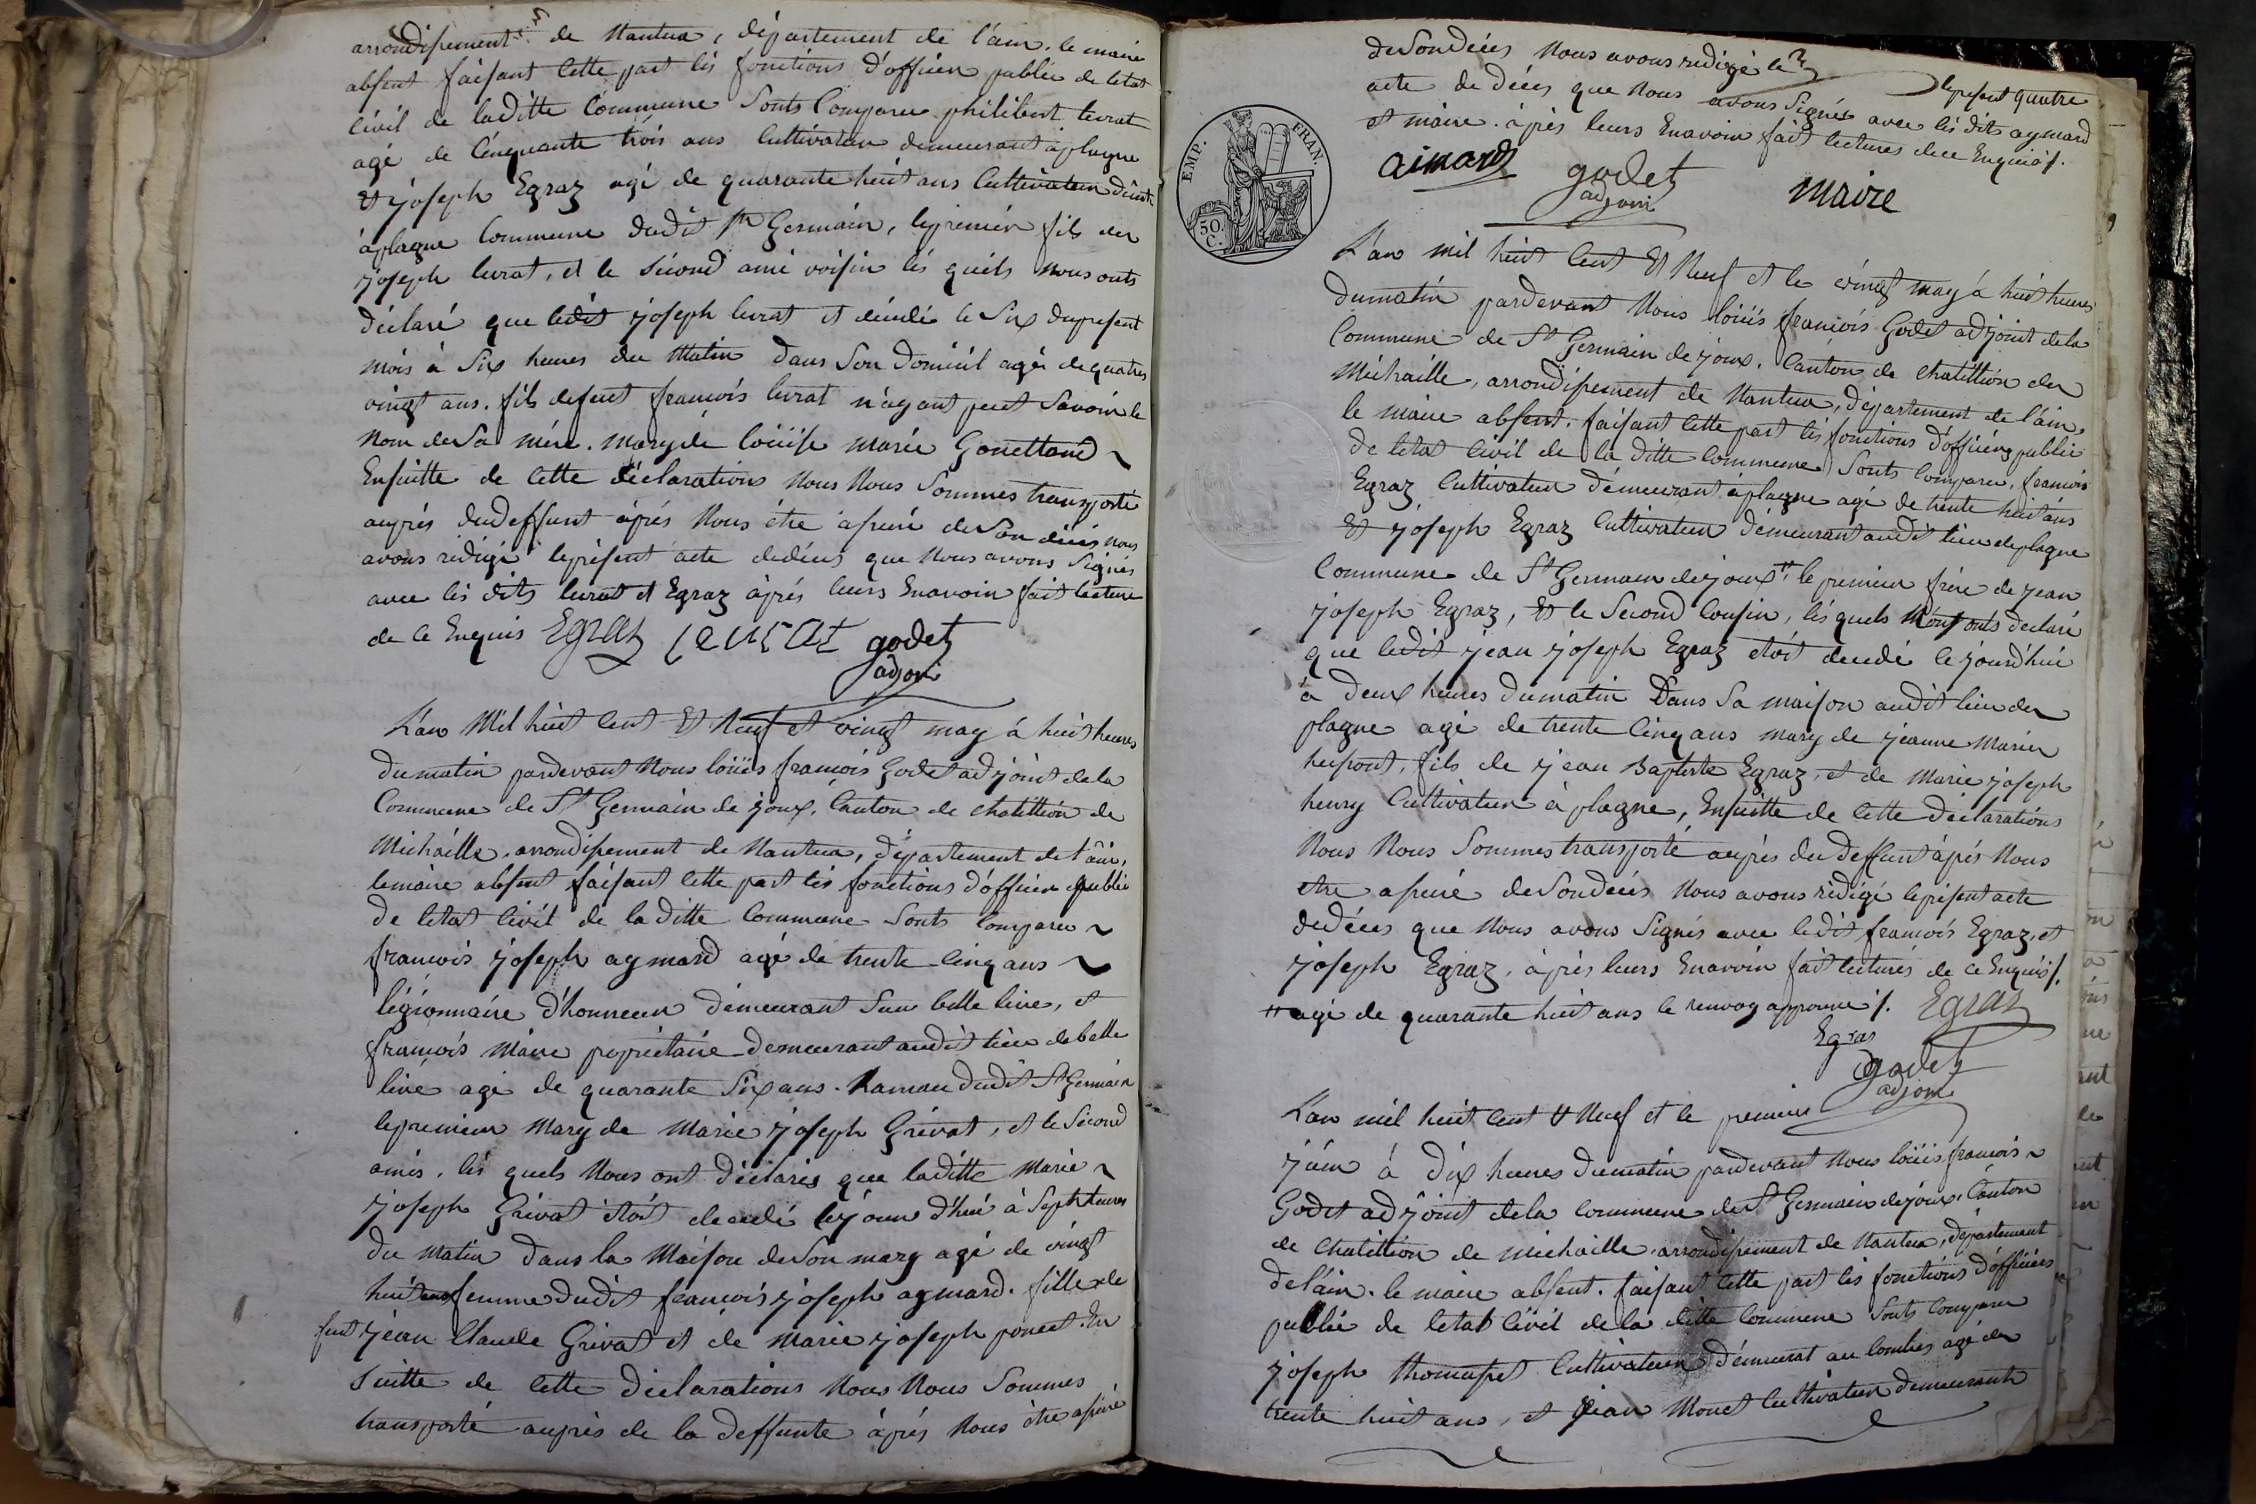 arrondissement de Nantua, département de l'ain. le maire
absent faisant cette part lés fonctions d'officier public de letat
civil de laditte Commune Sonts Comparu philibert levrat
agé de Cinquante trois ans Cultivateur demeurant à plagne
Et joseph Egraz agé de quarante huit ans Cultivateur
à plagne Commune dudit St Germain, le premier fils de
joseph levrat, et le sécond ami voisin lés quels nous onts
déclaré que ledit joseph levrat et décédé le Six du présent
mois à Six heures du Matin dans Son Domicil agé de quatres
vingt ans. fils defeut francois levrat n'ayant peut Savoir le
Nom de Sa mére. mary de loüise marie
Ensuitte de Cette déclarations Nous Nous Sommes transporté
auprés dudeffunt áprés Nous étre assuré de Son décés nous
avons rédigé le présent acte dedécés que Nous avons Signés
avec lés dits levrat et Egraz áprés leurs Enavoir fait lecture
de Ce Enquis Egraz levrat godet
adjoint
L'an Mil huit Cent Et Neuf et vingt may á huit heures
du matin pardevant Nous loüis francois Godet adjoint de la
Commune de St Germain de joux, Canton de chatillion de
Michaille, arrondissement de Nantua, département de l'ain,
le maire absent faisant cette part lés fonctions d'officier public
de letat Civil de la ditte Commune Sonts Comparu
francois joseph aymard agé de trente Cinq ans
légionnaire d'honneur demeurant Sur belle live, et
francois Maire propriétaire demeurant audit lieu de belle
live agé de quarante Six ans. hameau dudit St Germain
le premier mary de Marie joseph Grévat, et le sécond
amis, lés quels Nous ont déclarés que laditte Marie
joseph Grivat étoit decedé cejour d'hui à Sept heures
du matin dans la Maison de Son mary agé de vingt
huit ans femme dudit francois joseph aymard. fille de
feut jean Claude Grivat et de marie joseph poncet. En
Suitte de Cette Déclarations Nous Nous Sommes
transporté auprés de la deffunte áprés Nous étre assuré
de Son décés Nous avons rédigé le
present quatre
acte de décés que Nous avons Signés avec lés dits aymard
et maire. áprés leurs Enavoir fait lectures de ce Enquis /.
aimard godet maire
adjoint
EMP. FRAN.
50 C.
L'an mil huit Cent Et Neuf et le vingt may á huit heures
du matin pardevant Nous loüis francois Godet adjoint de la
Commune de St Germain de joux, Canton de chatillion de
Michaille, arrondissement de Nantua, département de l'ain,
le maire absent. faisant Cette part lés fonctions d'officier public
de létat Civil de la ditte Commune Sonts Comparu, francois
Egraz Cultivateur démeurant á plagne agé de trente huit ans
Et joseph Egraz Cultivateur démeurant audit lieu de plagne
Commune de St Germain de joux", le premier frére de jean
joseph Egraz, Et le Second Cousin, lés quels Nous onts declaré
que ledit jean joseph Egraz étoit decedé le jourd'hui
à deux heures du matin Dans Sa maison audit lieu de
plagne agé de trente Cinq ans mary de jeanne Marie
, fils de jean Baptiste Egraz, et de Marie joseph
henry Cultivateur à plagne, Ensuitte de Cette declarations
Nous Nous Sommes transporté auprés du deffunt áprés Nous
etre assuré de Son décés Nous avons rédigé le présent acte
dedécés que Nous avons Signés avec ledit francois Egraz, et
joseph Egraz, áprés leurs Enavoir fait lectures de ce Enquis /.
" agé de quarante huit ans le renvoy approuvé /. Egraz
Egras
godet
adjoint
L'an mil huit Cent Et Neuf et le premier
juin à dix heures du matin pardevant Nous loüis francois
Godet adjoint de la Commune de St Germain de joux, Canton
de Chatillion de michaille, arrondissement de Nantua, département
de l'ain. le maire absent. faisant cette part lés fonctions d'officiers
public de letat Civil de la ditte Commune Sonts Comparu
joseph thomasset Cultivateur démeurat au Combes agé de
trente huit ans, et jean Monet Cultivateur demeurant